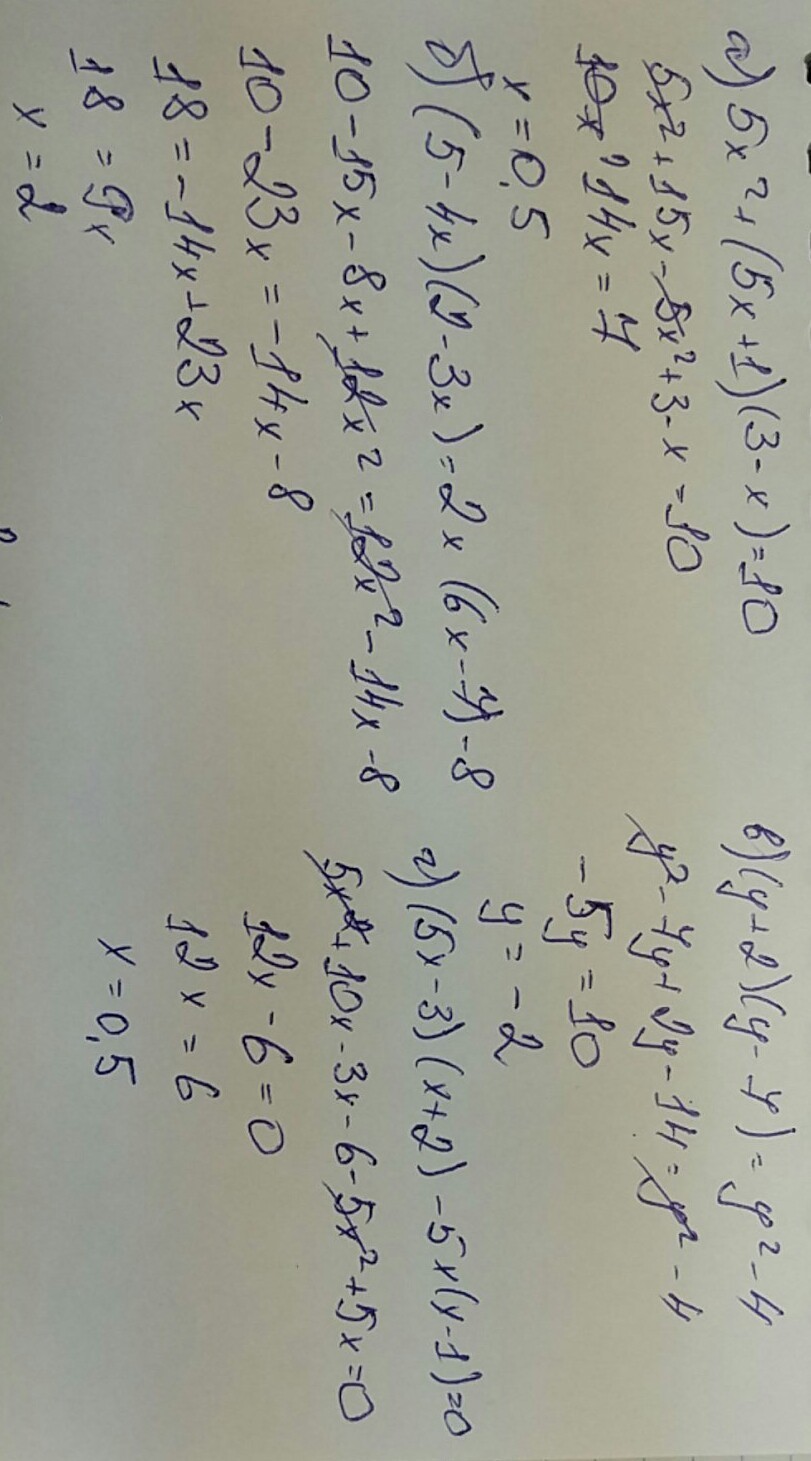 а) 5x² + (5x+1)(3-x) = 10
5x² + 15x - 5x² + 3 - x = 10
14x = 7
x = 0,5
б) (5-4x)(2-3x) = 2x(6x-7)-8
10 - 15x - 8x + 12x² = 12x² - 14x - 8
10 - 23x = -14x - 8
18 = -14x + 23x
18 = 9x
x = 2
в) (y+2)(y-7) = y² - 4
y² - 7y + 2y - 14 = y² - 4
-5y = 10
y = -2
г) (5x-3)(x+2) - 5x(y-1)=0
5x² + 10x - 3x - 6 - 5x² + 5x = 0
12x - 6 = 0
12x = 6
x = 0,5